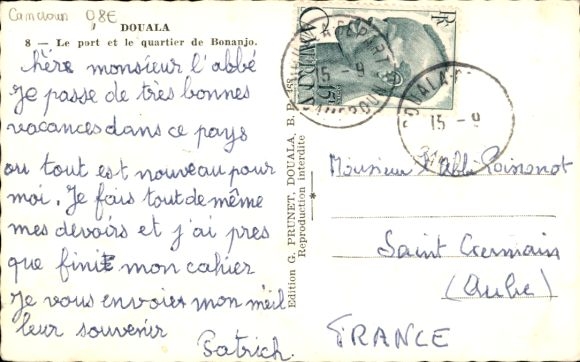 Cameroun 08E
DOUALA
8 — Le port et le quartier de Bonanjo.
hère monsieur l'abbé
Je passe de très bonnes
vacances dans ce pays
ou tout est nouveau pour
moi. Je fais tout de même
mes devoirs et j'ai pres
que finit mon cahier
Je vous envoier mon meil
leur souvenir
Patrich.
Edition G. PRUNET, DOUALA, B. P.
Reproduction interdite
*
RF
CAMEROUN
15F
15 - 9
DOUALA
15 - 9
Monsieur l'Abbé
Saint Germain
(Aube)
FRANCE